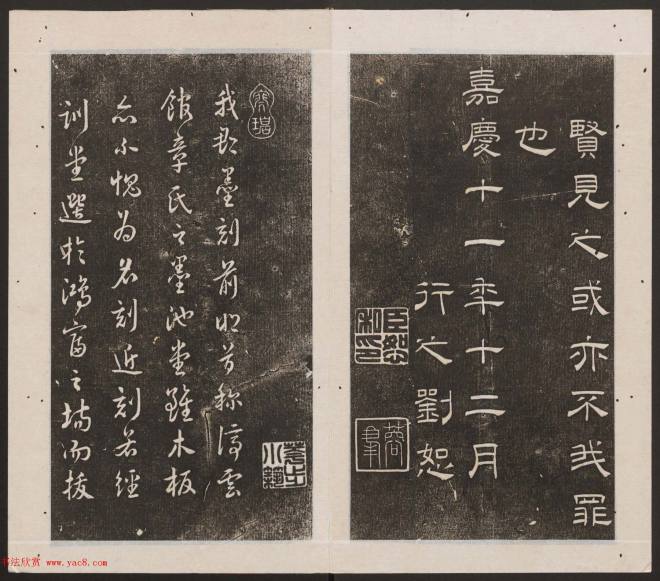 賢見之或亦不我罪
也
嘉慶十一年十二月
行之劉恕
臣恕私印
蓉峯
寒碧
我郡墨刻前明首称停雲
館章氏之墨池堂雖木板
亦不愧为名刻近刻若經
訓堂選於鴻富之場而拔
花步小築
书法欣赏 www.yac8.com